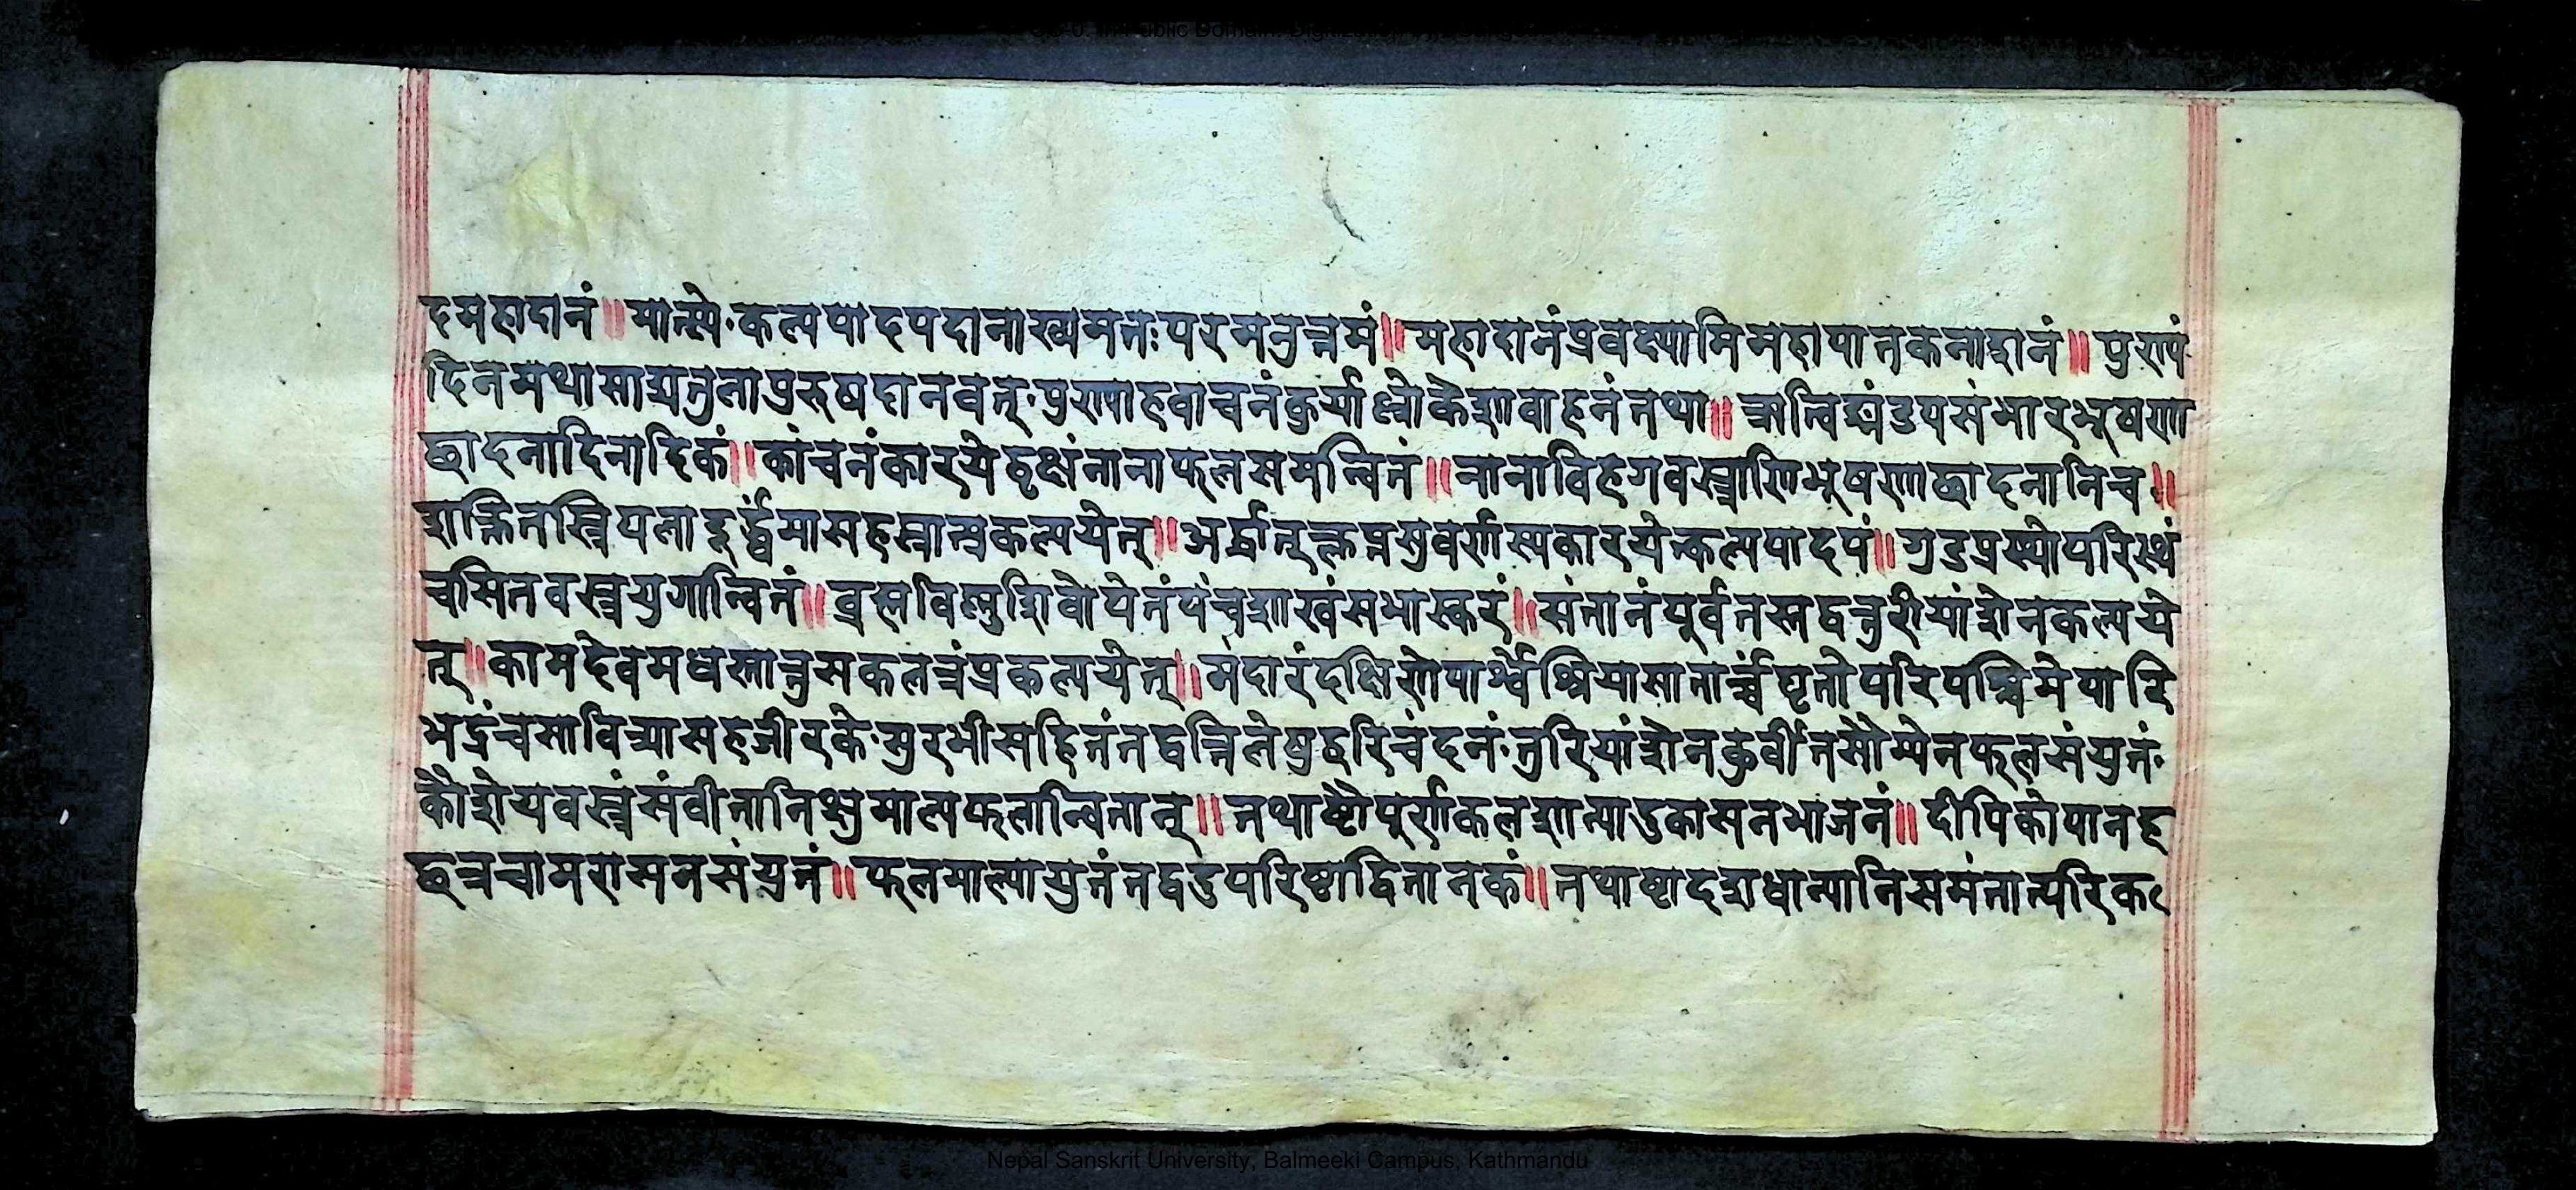 दमहादानं॥मात्स्ये·कल्पपादपदानाख्यमतःपरमनुत्तमं॥महादानंप्रवक्ष्यामिमहापातकनाशनं॥पुण्यं
दिनमथासाद्यतुलापुरुषदानवत्·पुण्याहवाचनंकुर्याल्लोकेशावाहनंतथा॥ऋत्विङ्मंडपसंभारभूषणा
छादनादिनादिकं॥कांचनंकारयेद्वृक्षंनानाफलसमन्वितं॥नानाविहगवस्त्राणिभूषणाछादनानिच॥
शक्तितस्त्रिपलादूर्द्ध्वमासहस्रात्प्रकल्पयेत्॥अर्द्धात्क्लृप्तसुवर्णस्यकारयेत्कल्पपादपं॥गुडप्रस्थोपरिस्थं
चसितवस्त्रयुगान्वितं॥ब्रह्मविष्णुशिवोपेतंपंचशाखंसभास्करं॥संतानंपूर्वतस्तद्वत्तुरीयांशेनकल्पये
त्॥कामदेवमधस्तात्तुसकलत्रंप्रकल्पयेत्॥मंदारंदक्षिणेपार्श्वेश्रियासार्द्धंघृतोपरिपश्चिमेपारि
भद्रंचसावित्र्यासहजीरके·सुरभीसहितंतद्वत्तिलेषुहरिचंदनं·तुरियांशेनकुर्वीतसौम्येनफलसंयुतं·
कौशेयवस्त्रंसंवीतानिक्षुमाल्यफलान्वितान्॥तथाष्टौपूर्णकलशान्पादुकासनभाजनं॥दीपिकोपानह
छत्रचामरासनसंयुतं॥फलमाल्यायुतंतद्वदुपरिष्टाद्वितानकं॥तथाष्टादशधान्यानिसमंतात्परिक
Nepal Sanskrit University, Balmeeki Campus, Kathmandu